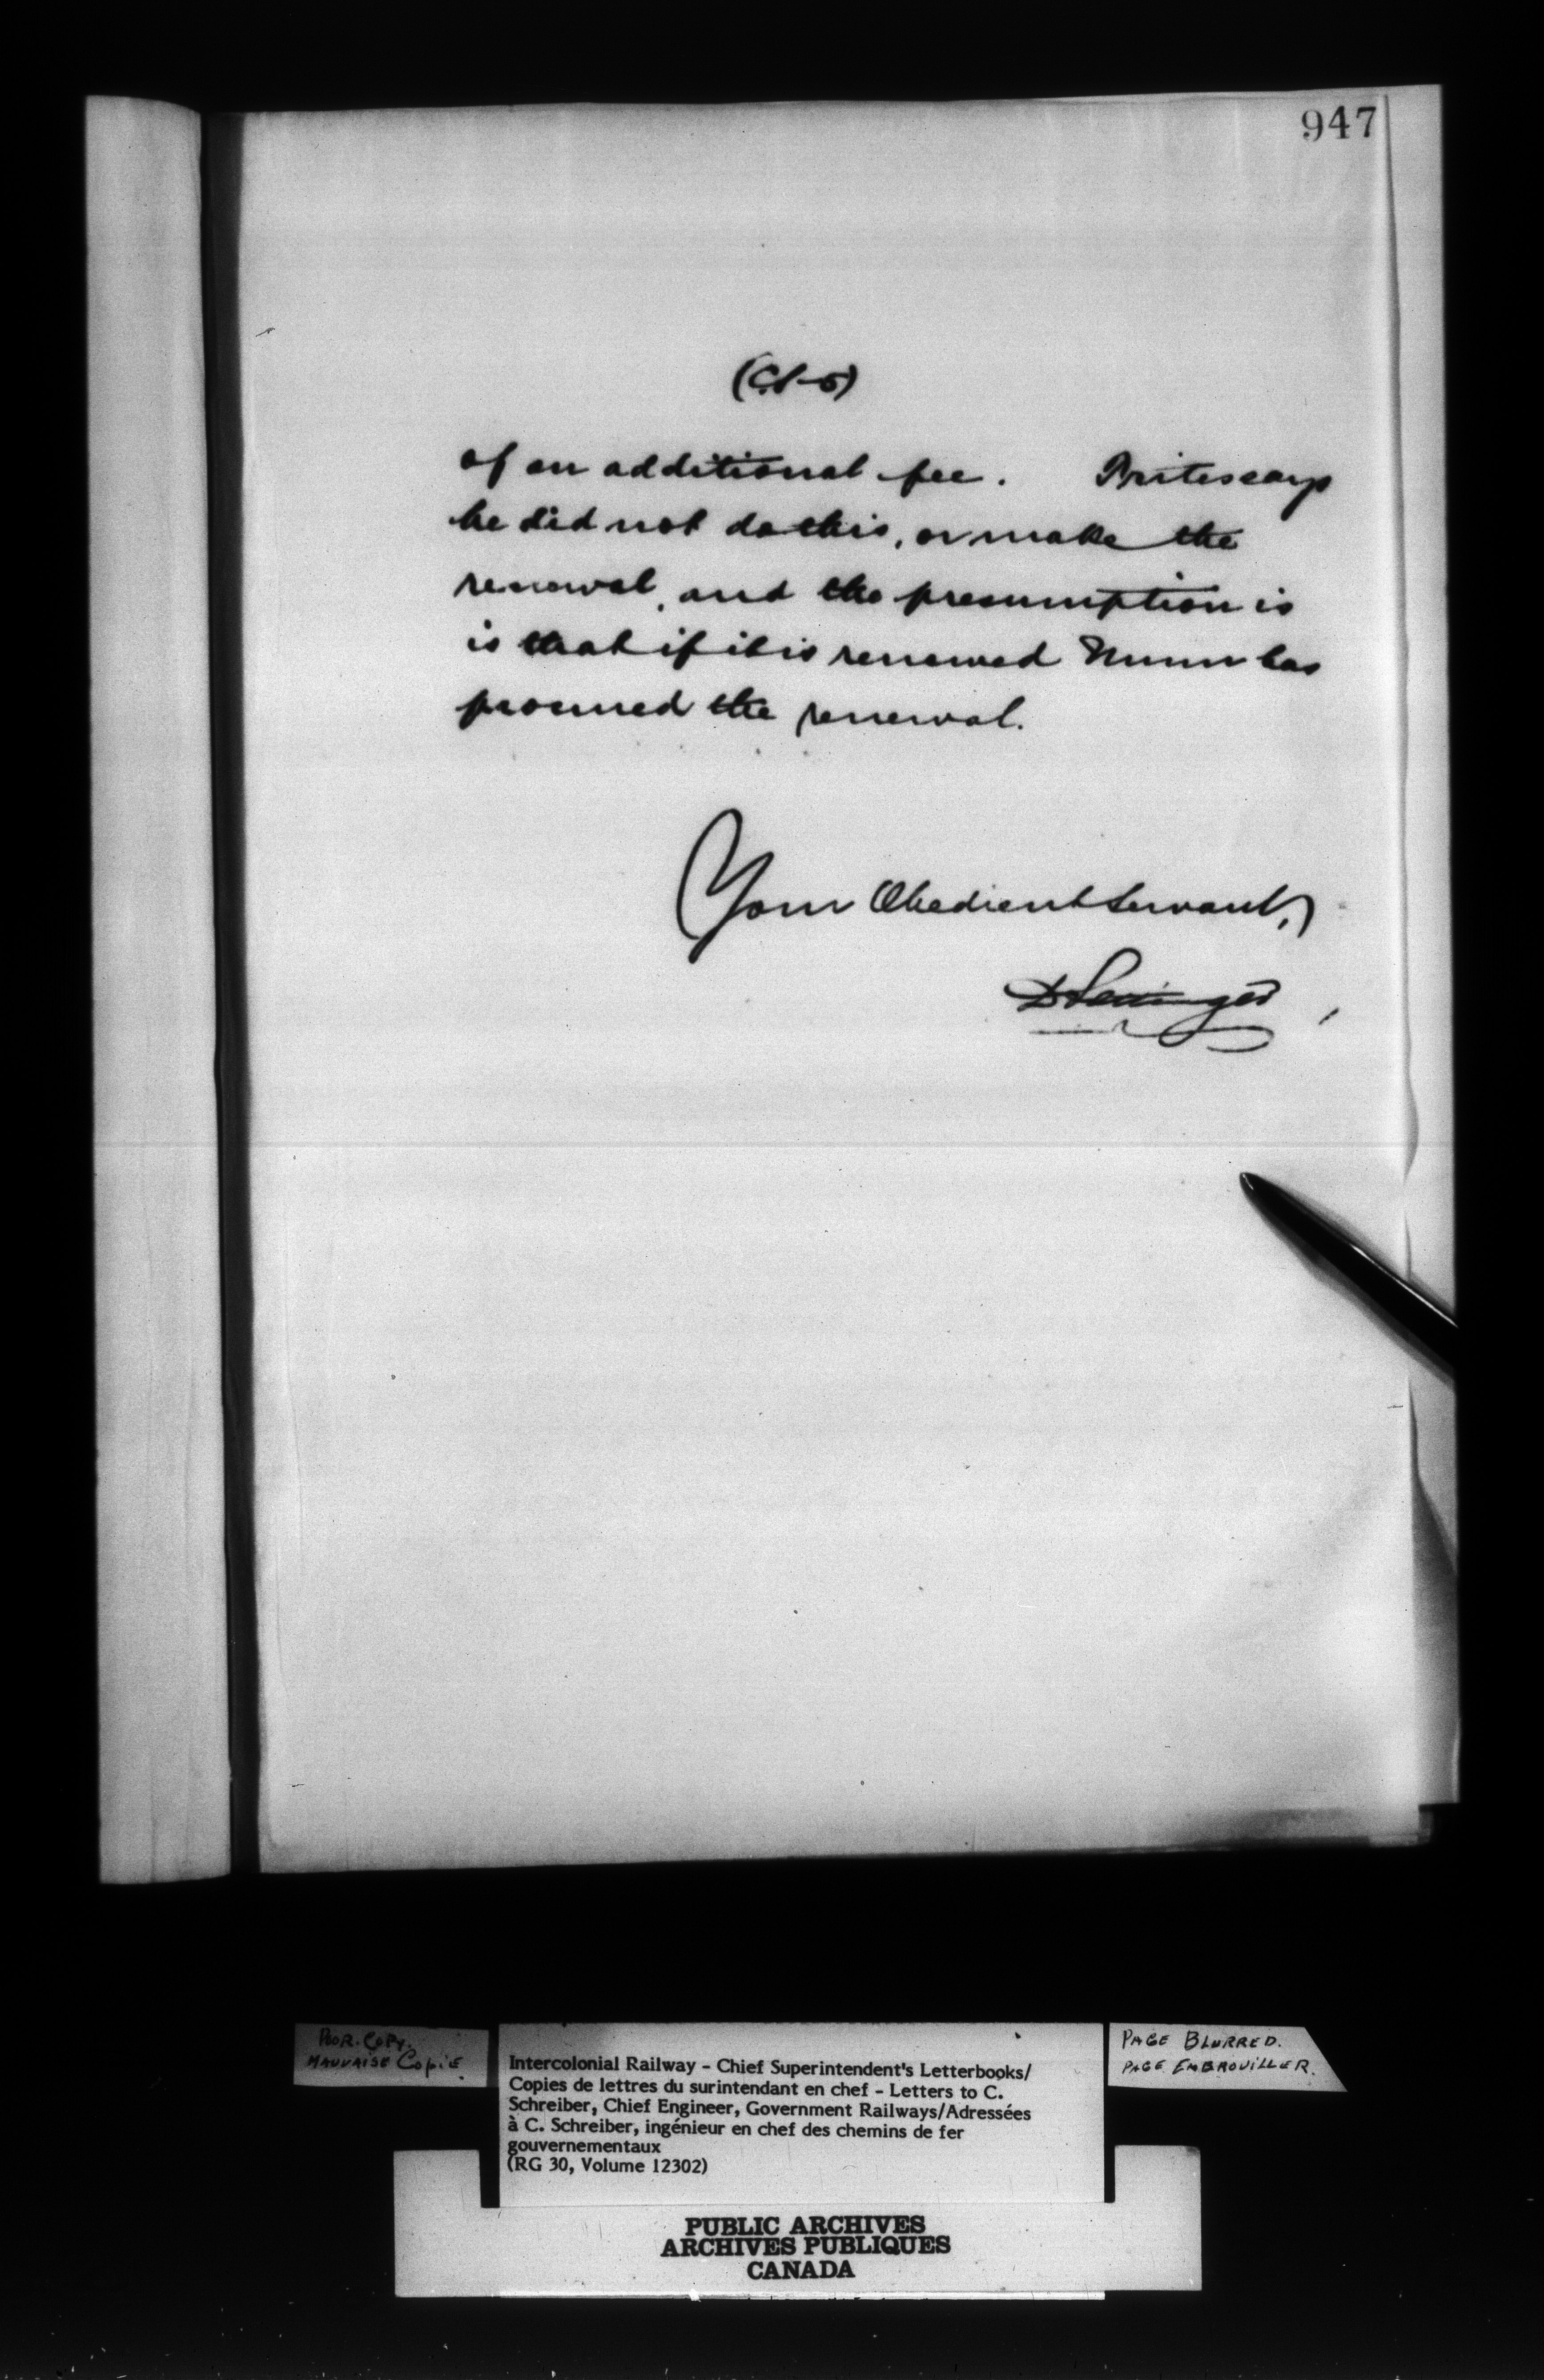 947
(C.S-5)
of an additional fee. Brites says
he did not do this, or make the
renewal, and the presumption is
is that if it is renewed Nunn has
procured the renewal.
Your Obedient Servant,
D Pottinger
POOR. COPY.
MAUVAISE COPIE
Intercolonial Railway – Chief Superintendent's Letterbooks/
Copies de lettres du surintendant en chef – Letters to C.
Schreiber, Chief Engineer, Government Railways/Adressées
à C. Schreiber, ingénieur en chef des chemins de fer
gouvernementaux
(RG 30, Volume 12302)
PAGE BLURRED.
PAGE EMBROUILLER.
PUBLIC ARCHIVES
ARCHIVES PUBLIQUES
CANADA